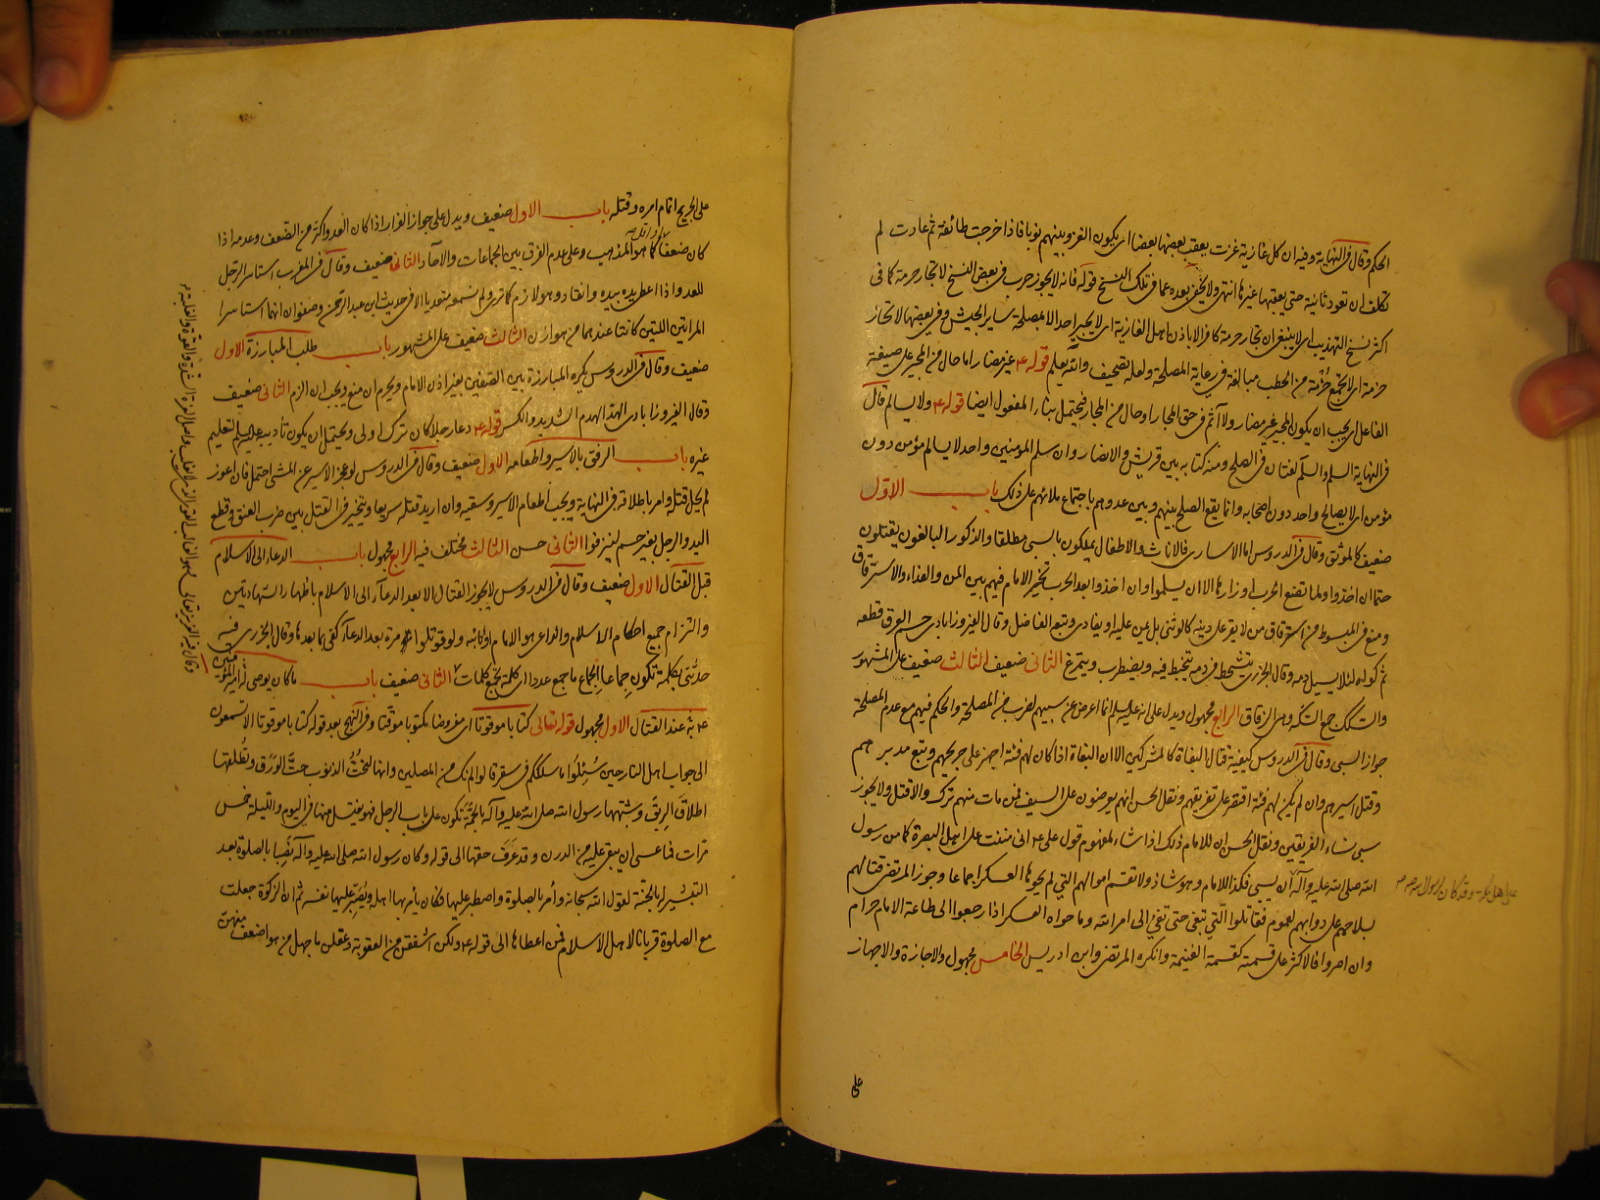 الحكم وقال في النهاية وفيه ان كل غازية غزت يعقب بعضها بعضا اى يكون الغزو بينهم نوبا فاذا خرجت طائفة ثم عادت لم
تكلف ان تعود ثانية حتى يعقبها غيرها انتهى ولا يخفى بعده عما في تلك النسخ قوله فانه لا يجوز حرب في بعض النسخ لا تجار حرمة كما في
اكثر نسخ التهذيب اى لا ينبغى ان تجار حرمة كافر الا باذن اهل الغازية اى لا يجير احد الا لمصلحة ساير الجيش وفي بعضها لا تحاز
حزمة اى لا تجمع حزمة من الحطب مبالغة في رعاية المصلحة ولعله تصحيف والله يعلم قوله ع غير مضار اما حال من المجير على صيغة
الفاعل اى يجب ان يكون المجير غير مضار ولا آثم في حق المجار او حال من المجار فيحتمل بناء المفعول ايضا قوله ع ولا يسالم قال
في النهاية السلم والسلم لغتان في الصلح ومنه كتابه بين قريش والانصار وان سلم المؤمنين واحد لا يسالم مؤمن دون
مؤمن اى لا يصالح واحد دون اصحابه وانما يقع الصلح بينهم وبين عدوهم باجتماع ملائهم على ذلك باب الاول
ضعيف كالموثق وقال في الدروس اما الاسارى فالاناث والاطفال يملكون بالسبى مطلقا والذكور البالغون يقتلون
حتما ان اخذوا ولما تضع الحرب اوزارها الا ان يسلموا وان اخذوا بعد الحرب تخير الامام فيهم بين المن والفداء والاسترقاق
ومنع في المبسوط من استرقاق من لا يقر على دينه كالوثنى بل يمن عليه او يفادى وتبعه الفاضل وقال الفيروزابادى حسم العرق قطعه
ثم كواه لئلا يسيل دمه وقال الجزرى يتشحط في دمه يتخبط فيه ويضطرب ويتمرغ الثانى ضعيف الثالث ضعيف على المشهور
والسكك جمع السكة وهى الزقاق الرابع مجهول ويدل على انه عليه السلام انما اعرض عن سبيهم لضرب من المصلحة والحكم فيهم مع عدم المصلحة
جواز السبى وقال في الدروس كيفية قتال البغاة كالمشركين الا ان البغاة اذا كان لهم فئة اجهز على جريحهم وتبع مدبرهم
وقتل اسيرهم وان لم يكن لهم فئة اقتصر على تفريقهم ونقل الحسن انهم يعرضون على السيف فمن مات منهم ترك والا قتل ولا يجوز
سبى نساء الفريقين ونقل الحسن ان للامام ذلك اذا شاء لمفهوم قول على ع انى مننت على اهل البصرة كما من رسول
الله صلى الله عليه وآله ان يسبى فكذا الامام وهو شاذ ولا تقسم اموالهم التى لم يحوها العسكر اجماعا وجوز المرتضى قتالهم
بسلاحهم على دوابهم لعموم فقاتلوا التى تبغى حتى تفئ الى امر الله وما حواه العسكر اذا رجعوا الى طاعة الامام حرام
وان اصروا فالاكثر على قسمته كقسمة الغنيمة وانكره المرتضى وابن ادريس الخامس مجهول والاجازة والاجهاز
على
على الجريح اتمام امره وقتله باب الاول ضعيف ويدل على جواز الفرار اذا كان العدو اكثر من الضعف وعدمه اذا
كان ضعفا كما هو المذهب وعلى عدم الفرق بين الجماعات والآحاد الثانى ضعيف وقال في المغرب استاسر الرجل
للعدو اذا اعطى بيده وانقاد وهو لازم كما ترى ولم نسمعه متعديا الا في حديث ابن عبد الرحمن وصفوان انهما استاسرا
المراتين اللتين كانتا عندهما من هوازن الثالث ضعيف على المشهور باب طلب المبارزة الاول
ضعيف وقال في الدروس يكره المبارزة بين الصفين بغير اذن الامام ويحرم ان منع ويجب ان الزم الثانى ضعيف
وقال الفيروزابادى الهد الهدم الشديد والكسر قوله ع دعا رجلا كان ترك اولى ويحتمل ان يكون تاديبه عليه السلام لتعليم
غيره باب الرفق بالاسير واطعامه الاول ضعيف وقال في الدروس لو عجز الاسير عن المشى احتمل فان اعوز
لم يحل قتله وامر باطلاقه في النهاية ويجب اطعام الاسير وسقيه وان اريد قتله سريعا ويتخير في القتل بين ضرب العنق وقطع
اليد والرجل بغير حسم لينزفوا الثانى حسن الثالث مختلف فيه الرابع مجهول باب الدعاء الى الاسلام
قبل القتال الاول ضعيف وقال في الدروس لا يجوز القتال الا بعد الدعاء الى الاسلام باظهار الشهادتين
والتزام جميع احكام الاسلام والداعى هو الامام او نائبه ولو قوتلوا مرة بعد الدعاء كفى عما بعدها وقال الجزرى فيه
حدثنى بكلمة تكون جماعا الجماع ما جمع عددا اى كلمة تجمع كلمات الثانى ضعيف باب ما كان يوصى امير المؤمنين
ع به عند القتال الاول مجهول قوله تعالى كتابا موقوتا اى مفروضا مكتوبا موقتا وفي النهج بعد قوله كتابا موقوتا الا تسمعون
الى جواب اهل النار حين سئلوا ما سلككم في سقر قالوا لم نك من المصلين وانها لتحت الذنوب حت الورق وتطلقها
اطلاق الربق وشبهها رسول الله صلى الله عليه وآله بالحمة تكون على باب الرجل فهو يغتسل منها في اليوم والليلة خمس
مرات فما عسى ان يبقى عليه من الدرن وقد عرف حقها الى قوله وكان رسول الله صلى الله عليه وآله نصبا بالصلوة بعد
التبشير له بالجنة لقول الله سبحانه وأمر بالصلوة واصطبر عليها فكان يأمر بها اهله ويصبر عليها نفسه ثم ان الزكوة جعلت
مع الصلوة قربانا لاهل الاسلام فمن اعطاها الى قوله ع ولكن اشفقن من العقوبة وعقلن ما جهل من هو اضعف منهن